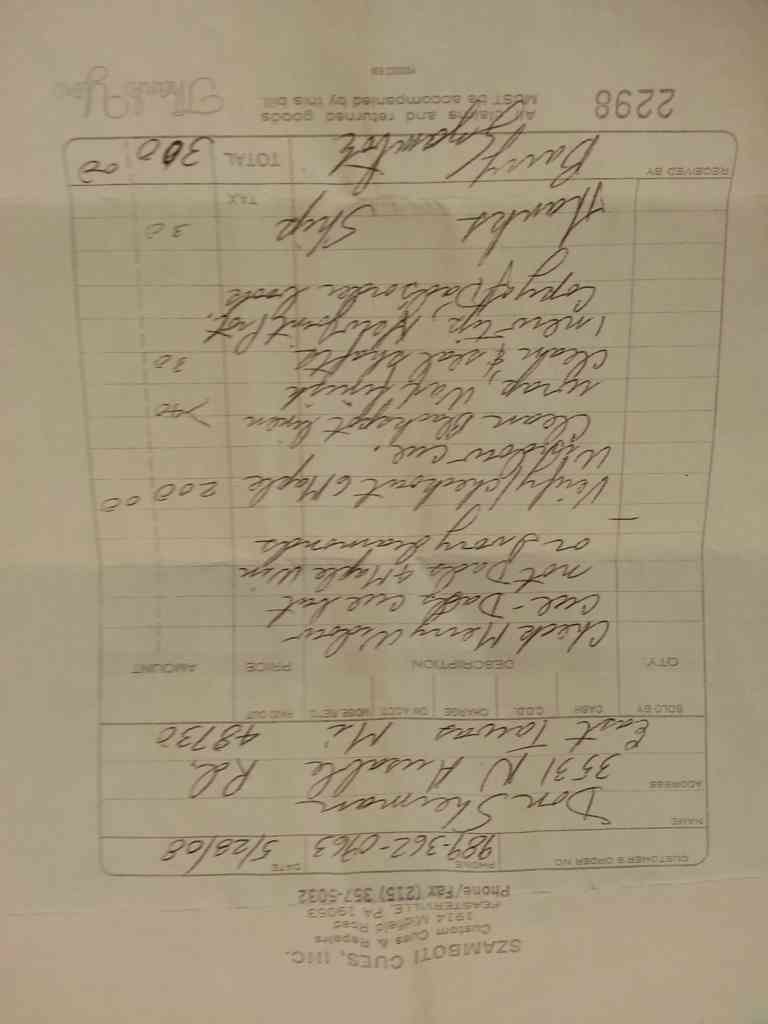 SZAMBOTI CUES, INC.
Custom Cues & Repairs
1914 Midfield Road
FEASTERVILLE, PA 19053
Phone/Fax (215) 357-5032
CUSTOMER'S ORDER NO. PHONE 989-362-0963 DATE 5/28/08
NAME Don Sherman
ADDRESS 3531 N Ausable Rd.
East Tawas Mi 48730
SOLD BY CASH C.O.D. CHARGE ON ACCT. MDSE. RET'D. PAID OUT
QTY. DESCRIPTION PRICE AMOUNT
Check Merry Widow
cue - Dads cue but
not Dads 4 Maple Win
or Ivory diamonds
Verify/checkout 6 Maple 200 00
Window cue.
Clean Black ppt linen 40
wrap, Wax finish
Clean & seal shafts 30
1 new Tip, New Joint Prot.
Copy of Dads order book
Thanks Ship 30
TAX
RECEIVED BY Barry Szamboti TOTAL 300 00
2298 All claims and returned goods
MUST be accompanied by this bill. Thank You